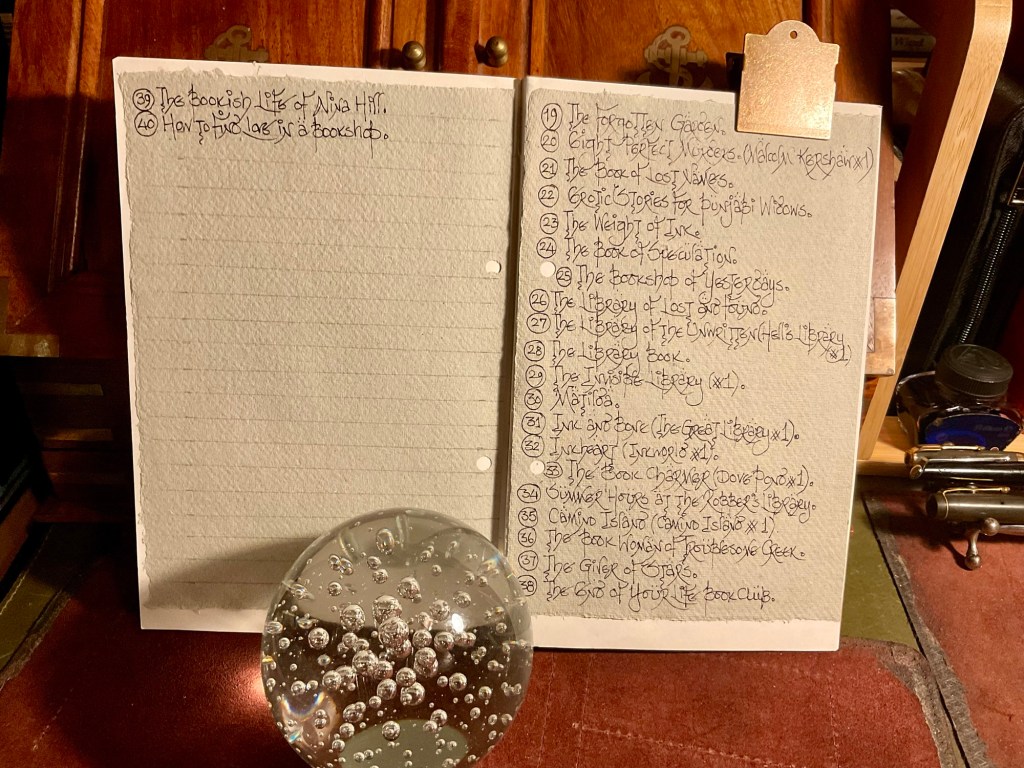 39 The Bookish Life of Nina Hill.
40 How To Find Love in a Bookshop.
19 The Forgotten Garden.
20 Eight Perfect Murders. (Malcolm Kershaw #1)
21 The Book of Lost Names.
22 Erotic Stories for Punjabi Widows.
23 The Weight of Ink.
24 The Book of Speculation.
25 The Bookshop of Yesterdays.
26 The Library of Lost and Found.
27 The Library of the Unwritten (Hell's Library
#1)
28 The Library Book.
29 The Invisible Library (#1).
30 Matilda.
31 Ink and Bone (The Great Library #1).
32 Inkheart (Inkworld #1).
33 The Book Charmer (Dove Pond #1).
34 Summer Hours at the Robbers Library.
35 Camino Island (Camino Island #1)
36 The Book Woman of Troublesome Creek.
37 The Giver of Stars.
38 The End of Your Life Book Club.